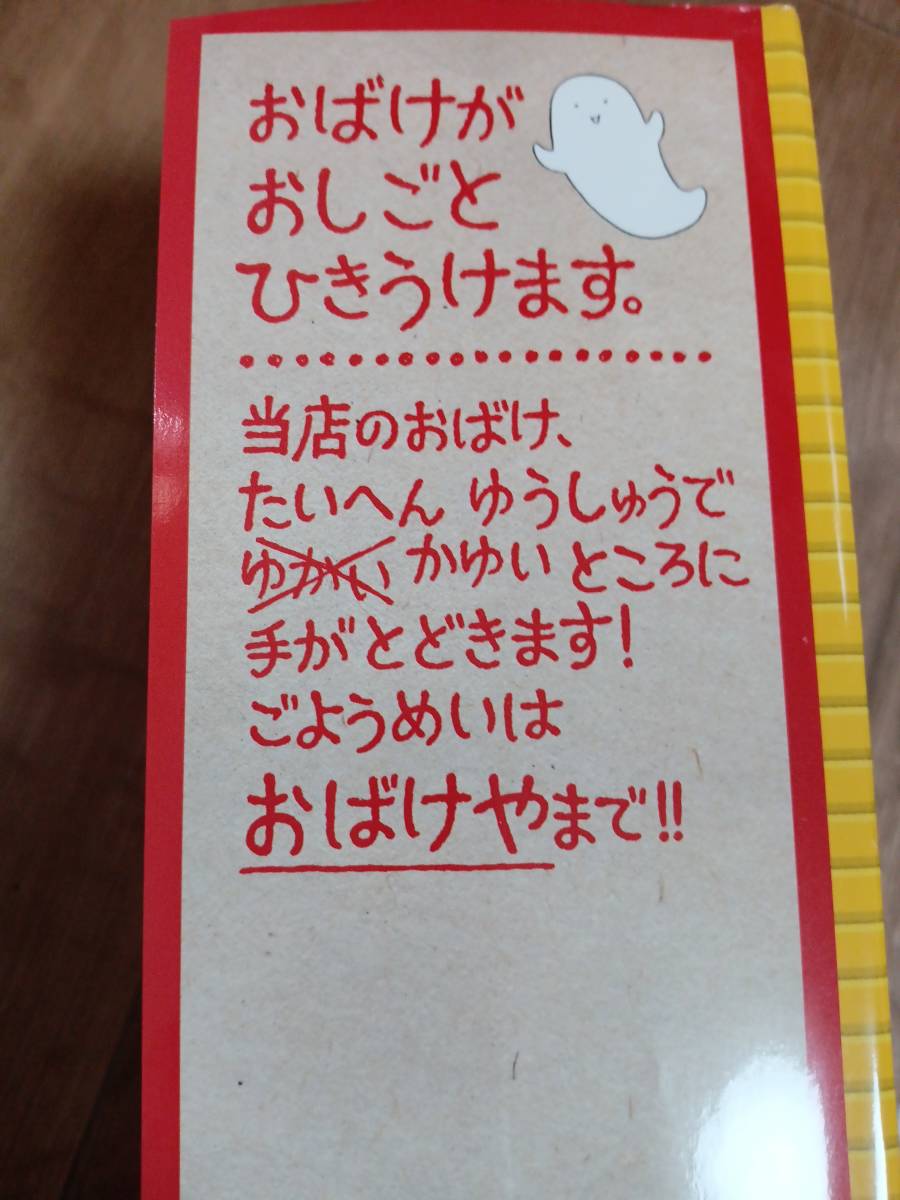 おばけが
おしごと
ひきうけます。
当店のおばけ、
たいへん ゆうしゅうで
ゆかい かゆい ところに
手がとどきます!
ごようめいは
おばけやまで!!